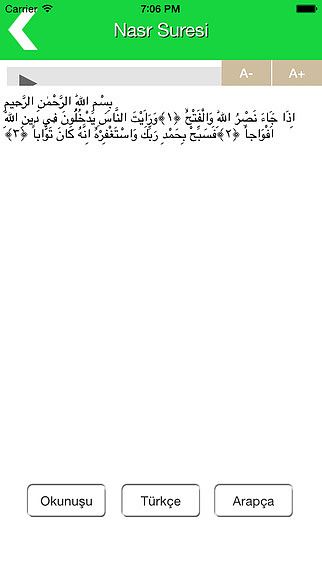 Carrier 7:06 PM
Nasr Suresi
A- A+
بِسْمِ اللّٰهِ الرَّحْمٰنِ الرَّحيمِ
اِذَا جَاءَ نَصْرُ اللّٰهِ وَالْفَتْحُ ﴿١﴾وَرَاَيْتَ النَّاسَ يَدْخُلُونَ فى دينِ اللّٰهِ
اَفْوَاجاً ﴿٢﴾فَسَبِّحْ بِحَمْدِ رَبِّكَ وَاسْتَغْفِرْهُ اِنَّهُ كَانَ تَوَّاباً ﴿٣﴾
Okunuşu Türkçe Arapça